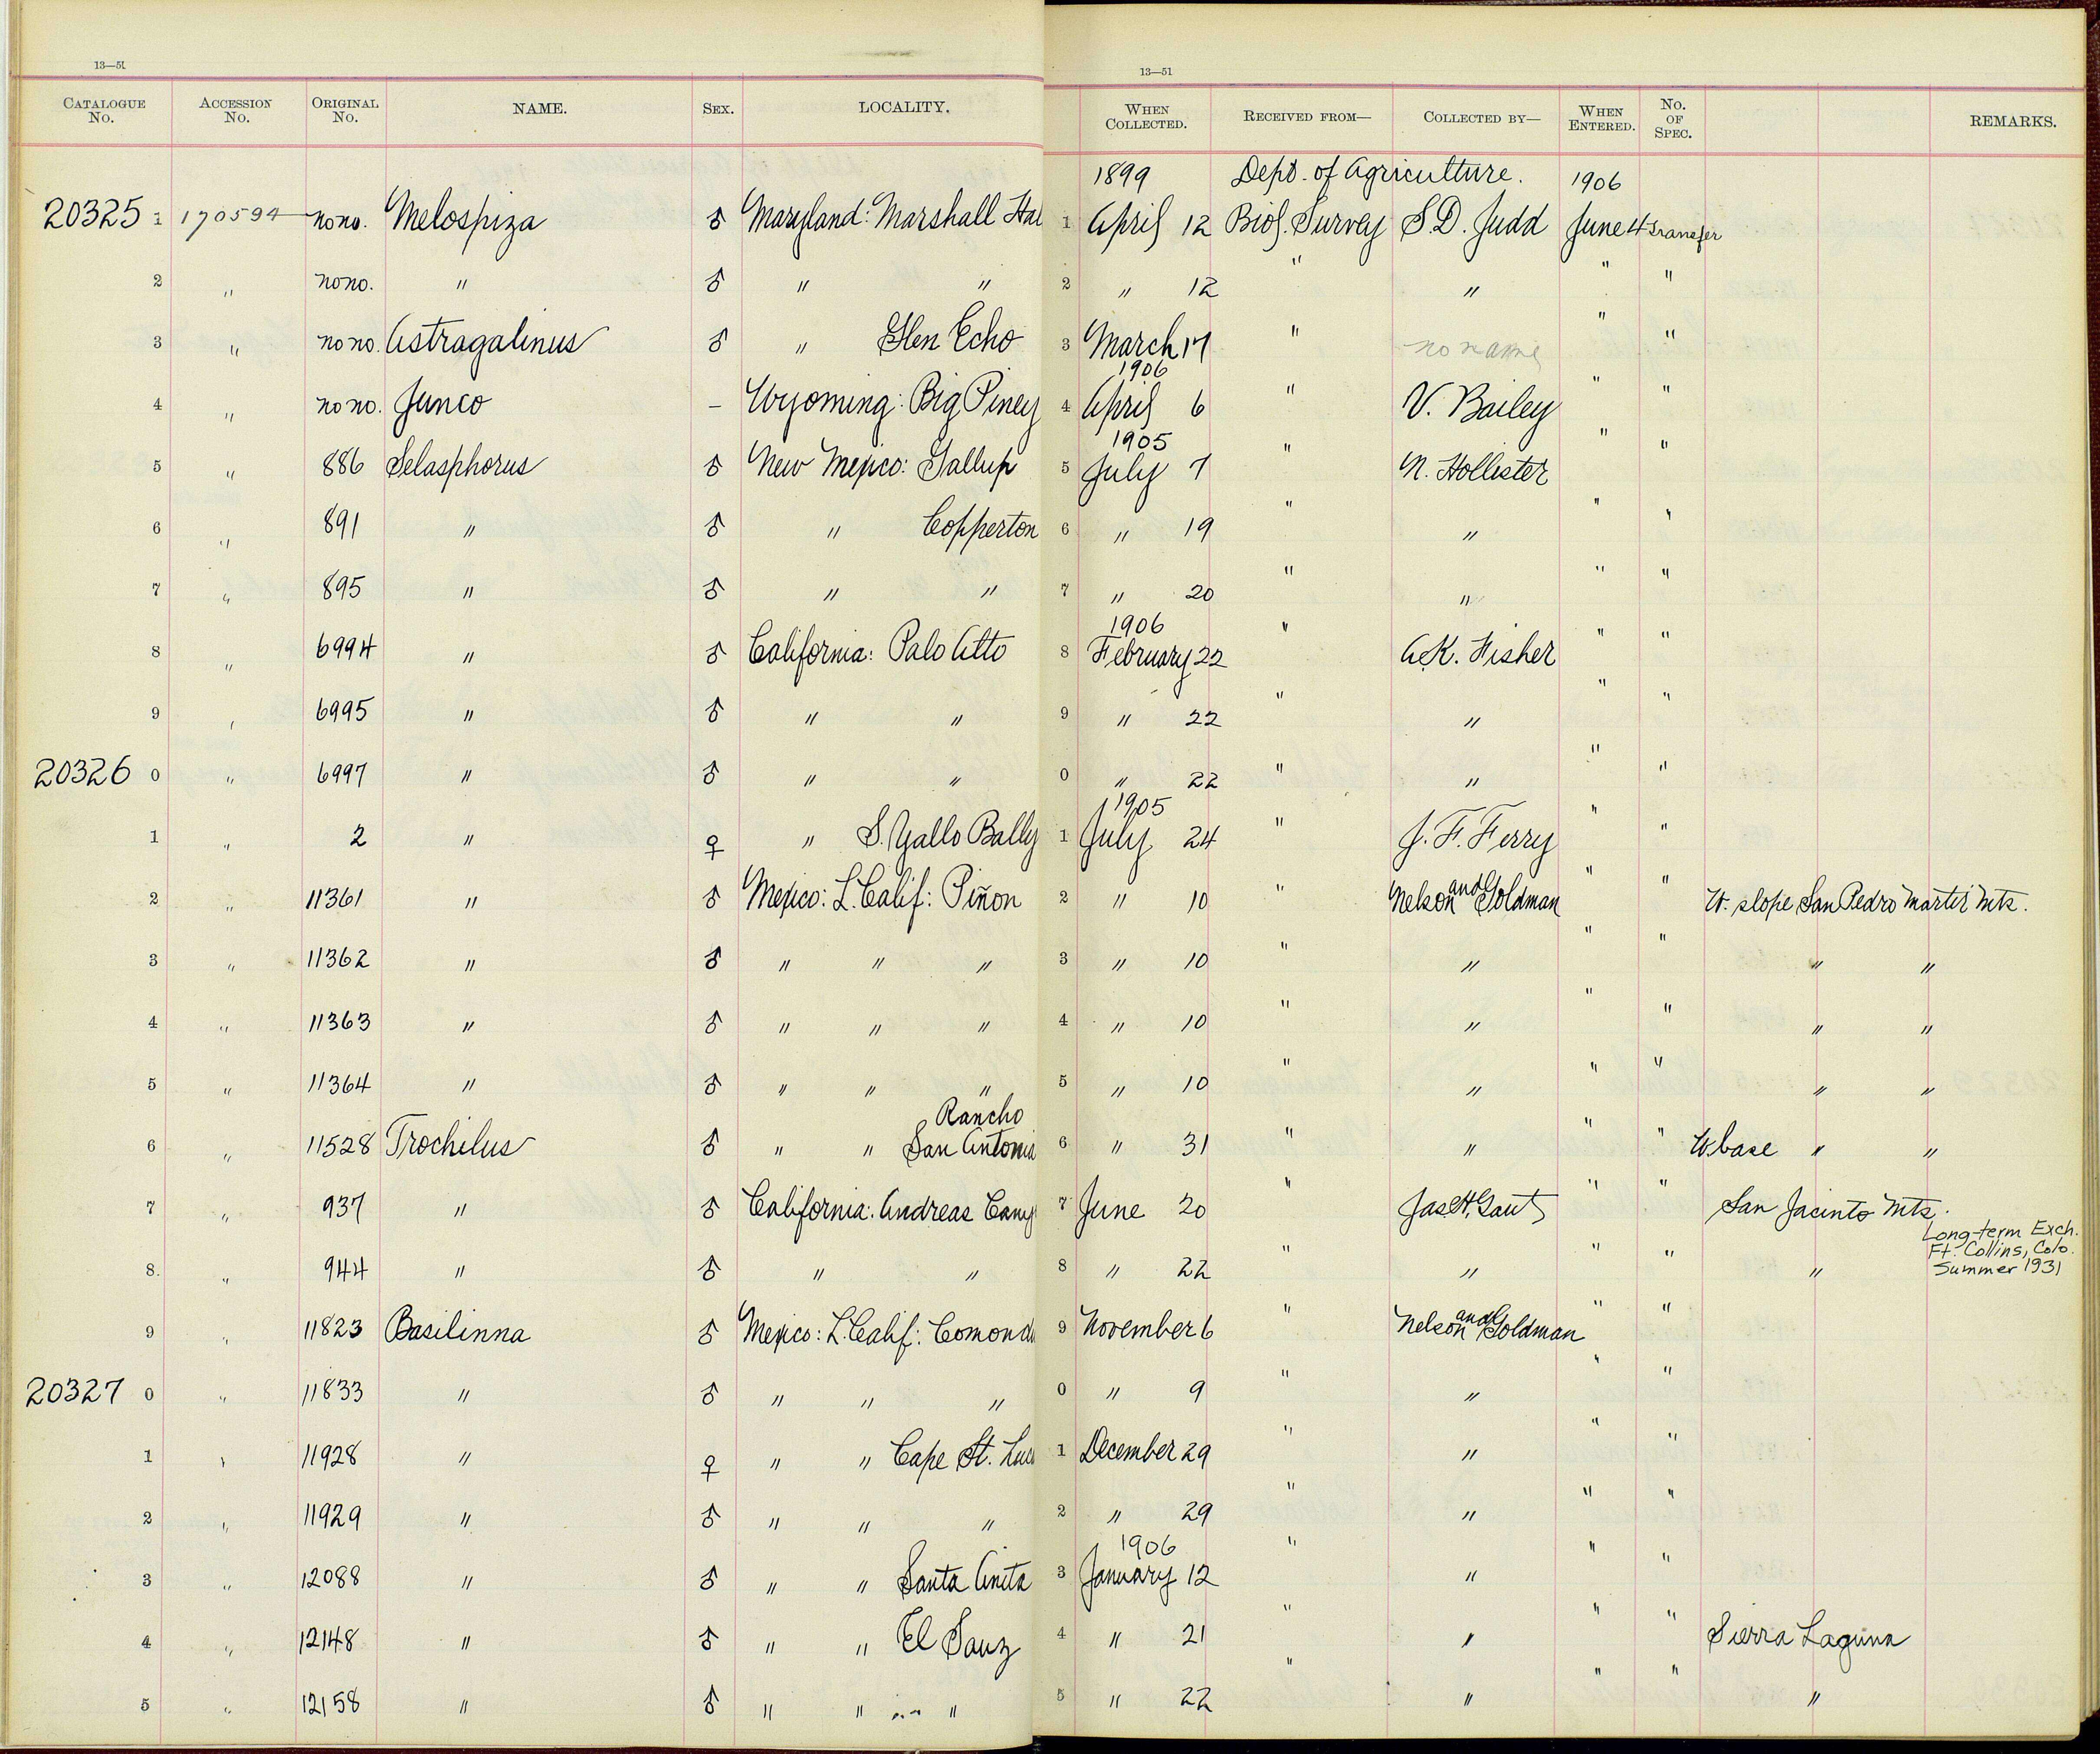 13—51
13—51
CATALOGUE No. ACCESSION No. ORIGINAL No. NAME. SEX. LOCALITY. WHEN COLLECTED. RECEIVED FROM— COLLECTED BY— WHEN ENTERED. No. OF SPEC. REMARKS.
1899 Dept. of Agriculture. 1906
20325 1 170594 no no. Melospiza ♂ Maryland: Marshall Hal 1 April 12 Biol. Survey S. D. Judd June 4 transfer
2 " no no. " ♂ " " 2 " 12 " " " "
3 " no no. Astragalinus ♂ " Glen Echo 3 March 17 " no name " "
1906
4 " no no. Junco – Wyoming: Big Piney 4 April 6 " V. Bailey " "
1905
5 " 886 Selasphorus ♂ New Mexico: Gallup 5 July 7 " N. Hollister " "
6 " 891 " ♂ " Copperton 6 " 19 " " " "
7 " 895 " ♂ " " 7 " 20 " " " "
1906
8 " 6994 " ♂ California: Palo Alto 8 February 22 " A.K. Fisher " "
9 " 6995 " ♂ " " 9 " 22 " " " "
20326 0 " 6997 " ♂ " " 0 " 22 " " " "
1905
1 " 2 " ♀ " S. Yallo Bally 1 July 24 " J. F. Ferry " "
2 " 11361 " ♂ Mexico: L. Calif: Piñon 2 " 10 " Nelson and Goldman " " W. slope San Pedro Martir Mts.
3 " 11362 " ♂ " " " 3 " 10 " " " " " "
4 " 11363 " ♂ " " " 4 " 10 " " " " " "
5 " 11364 " ♂ " " " 5 " 10 " " " " " "
Rancho
6 " 11528 Trochilus ♂ " " San Antonio 6 " 31 " " " " W base " "
7 " 937 " ♂ California: Andreas Cany 7 June 20 " Jas. H. Gaut " " San Jacinto Mts.
Long-term Exch.
Ft. Collins, Colo.
8. " 944 " ♂ " " 8 " 22 " " " " " Summer 1931
9 " 11823 Basilinna ♂ Mexico: L. Calif: Comond 9 November 6 " Nelson and Goldman " "
20327 0 " 11833 " ♂ " " " 0 " 9 " " " "
1 " 11928 " ♀ " " Cape St. Luc 1 December 29 " " " "
2 " 11929 " ♂ " " " 2 " 29 " " " "
1906
3 " 12088 " ♂ " " Santa Anita 3 January 12 " " " "
4 " 12148 " ♂ " " El Sauz 4 " 21 " " " " Sierra Laguna
5 " 12158 " ♂ " " " " 5 " 22 " " " " "